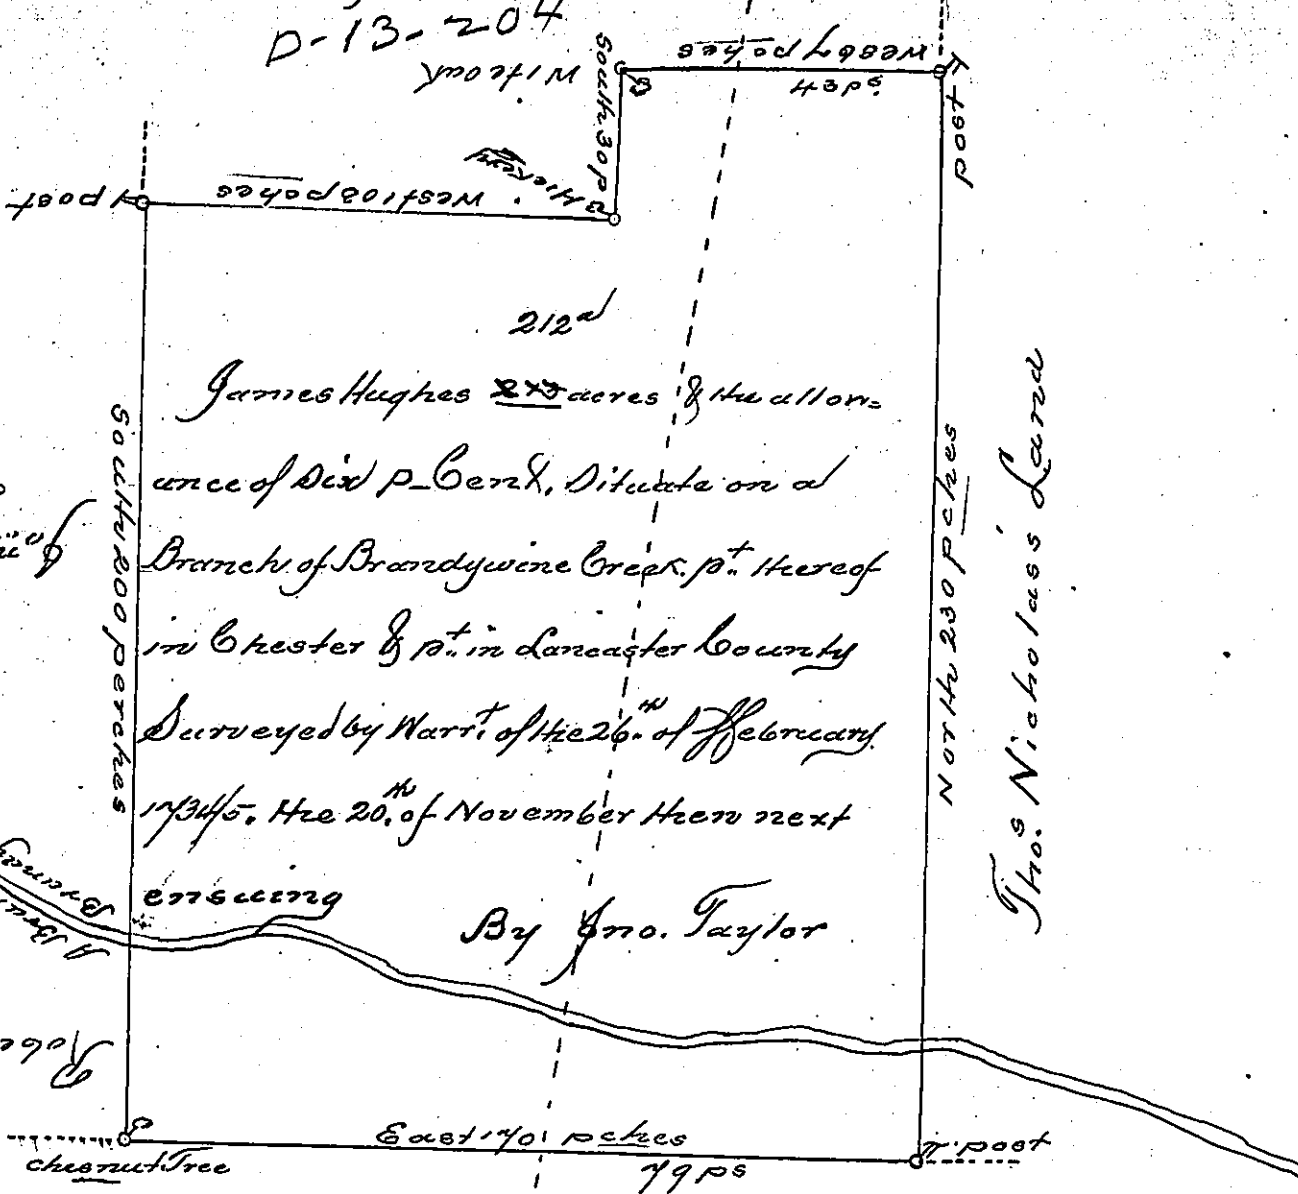 D-13-204
West 67 pches
43 ps.
South 30 p
Wite oak
Hickory
post
West 103 pches
post
212 a
James Hughes acres & the allow=
ance of Six p Cent, Situate on a
Branch of Brandywine Creek. pt. thereof
in Chester & pt. in Lancaster County
Surveyed by Warrt. of the 26th. of ffebruary
1734/5. the 20th. of November then next
ensuing
By Jno. Taylor
South 200 perches
North 230 pches
Thos. Nicholas's Land
East 170 pches
79 ps
post
chesnut Tree